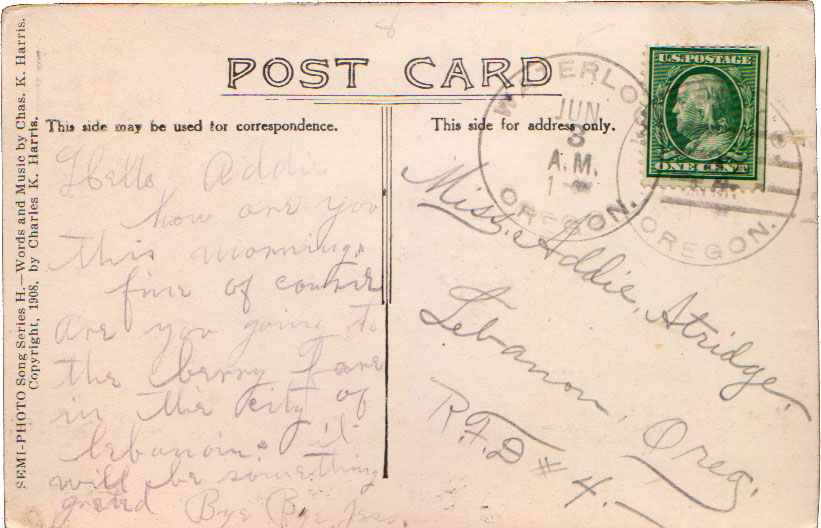 POST CARD
This side may be used for correspondence.
This side for address only.
SEMI-PHOTO Song Series H.—Words and Music by Chas. K. Harris.
Copyright, 1908, by Charles K. Harris.
Hello Addie
how are you
this morning.
fine of course
are you going to
the berry Fare
in the city of
lebanon. it
will be something
grand Bye Bye Jess.
WATERLOO
JUN
3
A.M.
OREGON.
U.S. POSTAGE
ONE CENT
OREGON.
Miss. Addie, Atridge,
Lebanon, Oreg.
R.F.D # 4.